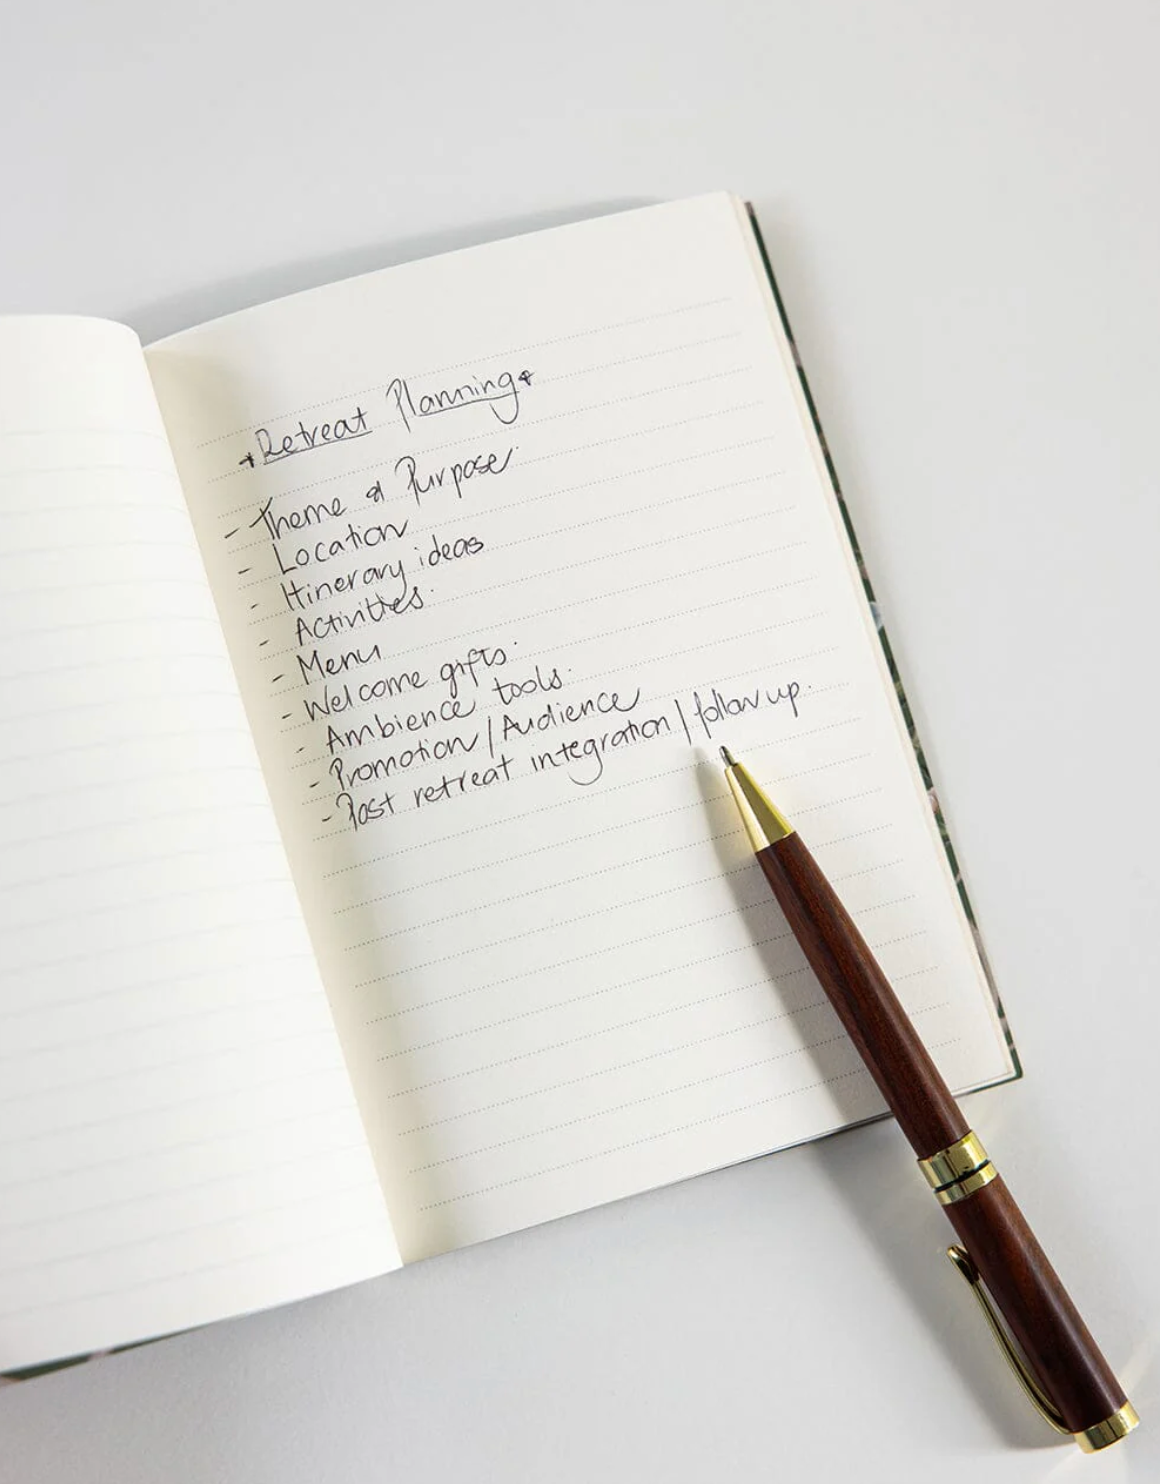 *Retreat Planning*
- Theme & Purpose.
- Location
- Itinerary ideas
- Activities.
- Menu
- Welcome gifts.
- Ambience tools.
- Promotion/Audience
- Post retreat integration/follow up.